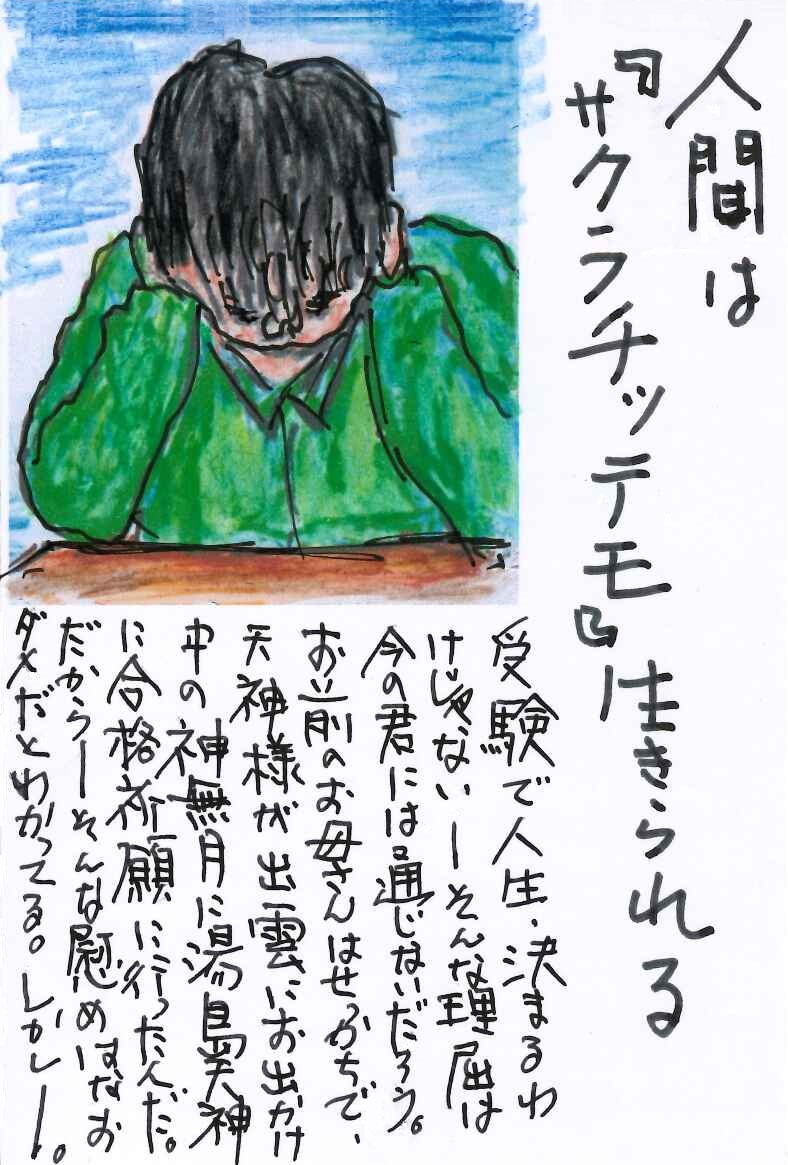 人間は
『サクラチッテモ』生きられる
受験で人生、決まるわ
けじゃないーそんな理屈は
今の君には通じないだろう。
お前のお母さんはせっかちで、
天神様が出雲にお出かけ
中の神無月に湯島天神
に合格祈願に行ったんだ。
だからーそんな慰めはなお
ダメだとわかってる。しかしー。